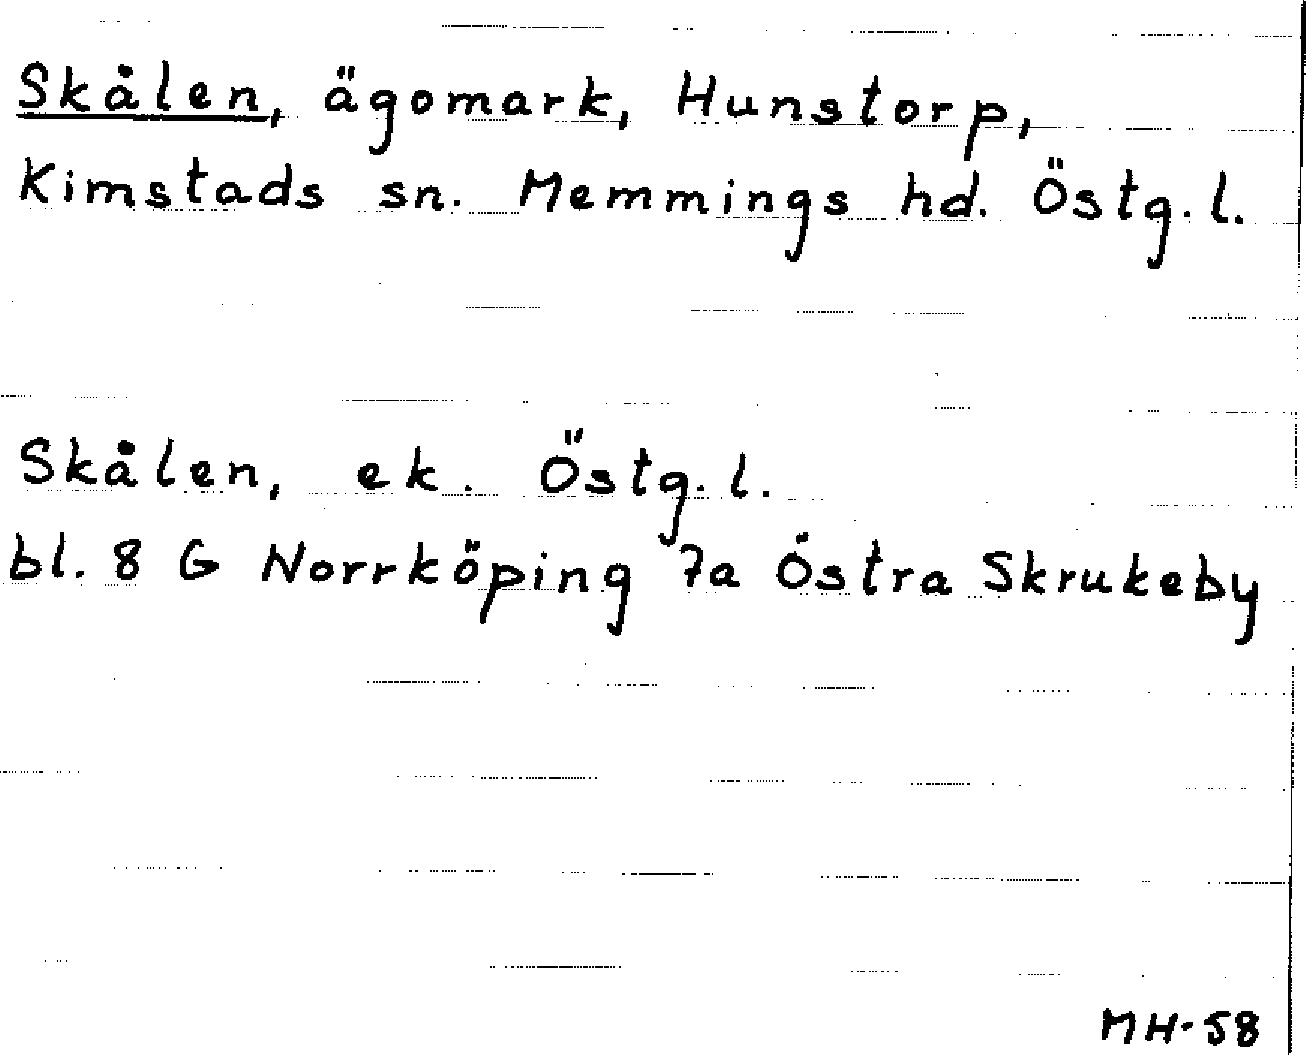 Skålen, ägomark, Hunstorp,
Kimstads sn. Memmings hd. Östg. l.
Skålen, ek. Östg. l.
bl. 8 G Norrköping 7a Östra Skrukeby
MH-58